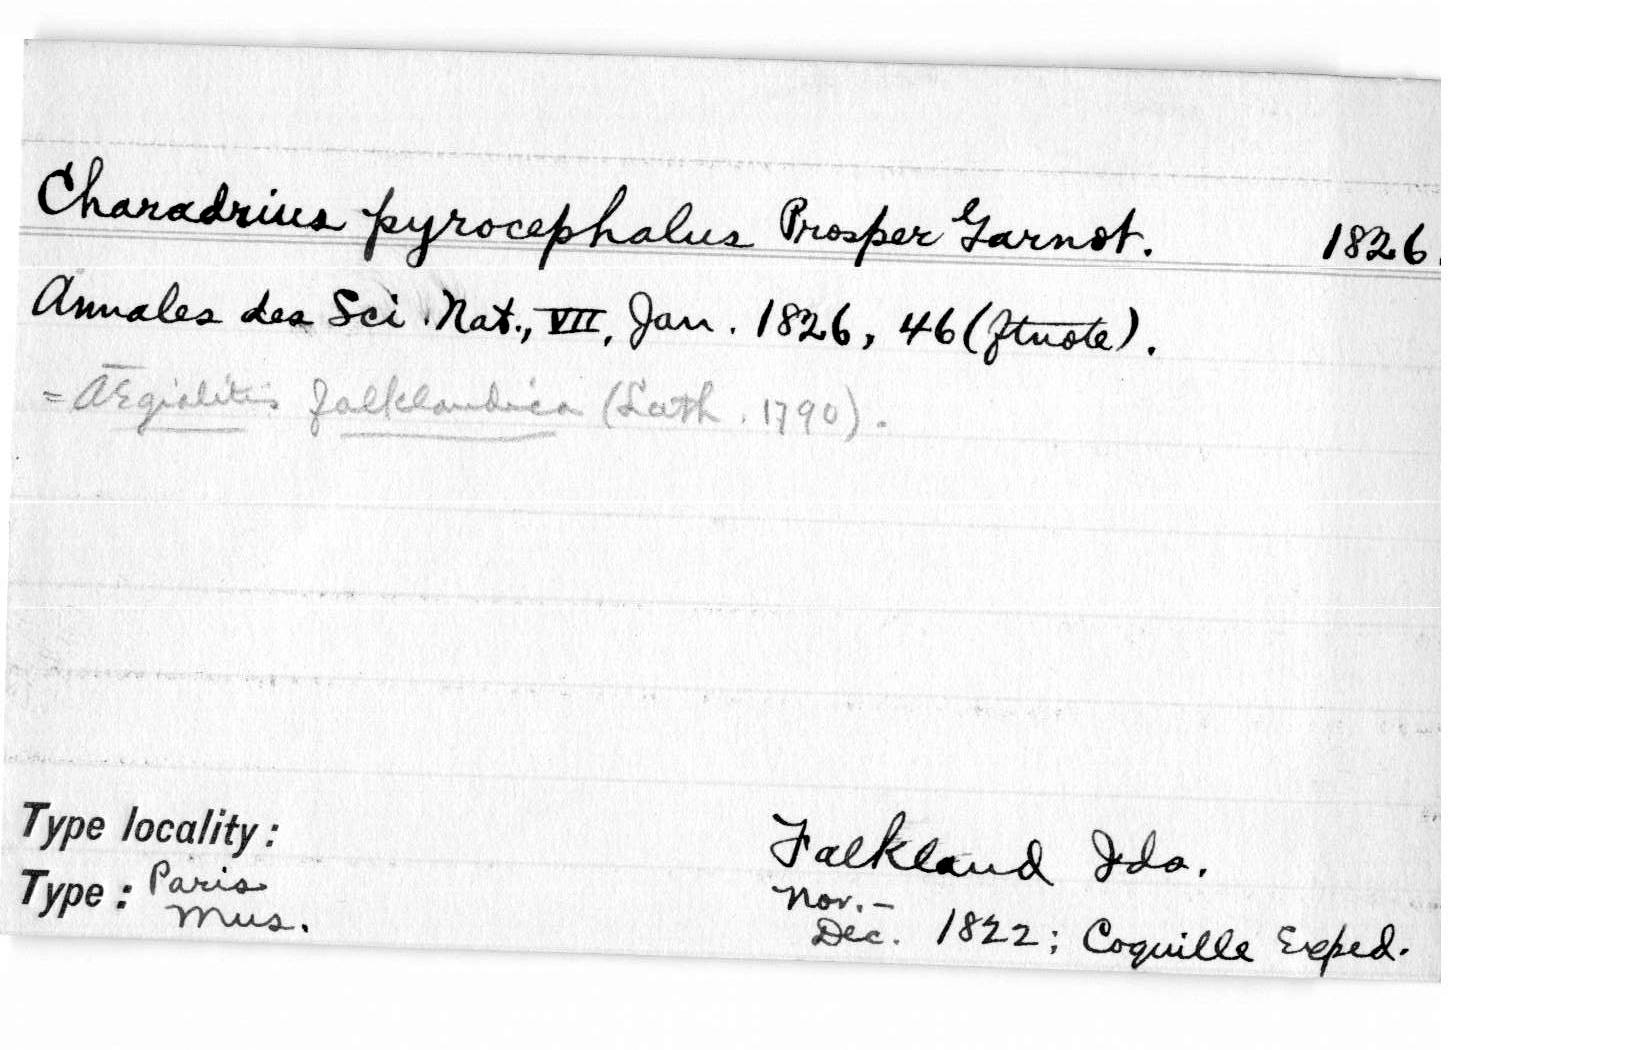 Charadrius pyrocephalus Prosper Garnot. 1826.
Annales des Sci. Nat., VII, Jan. 1826, 46 (ftnote).
= AEgialitis falklandica (Lath. 1790).
Type locality: Falkland Ids.
Type: Paris Mus. Nov.-Dec. 1822; Coquille Exped.